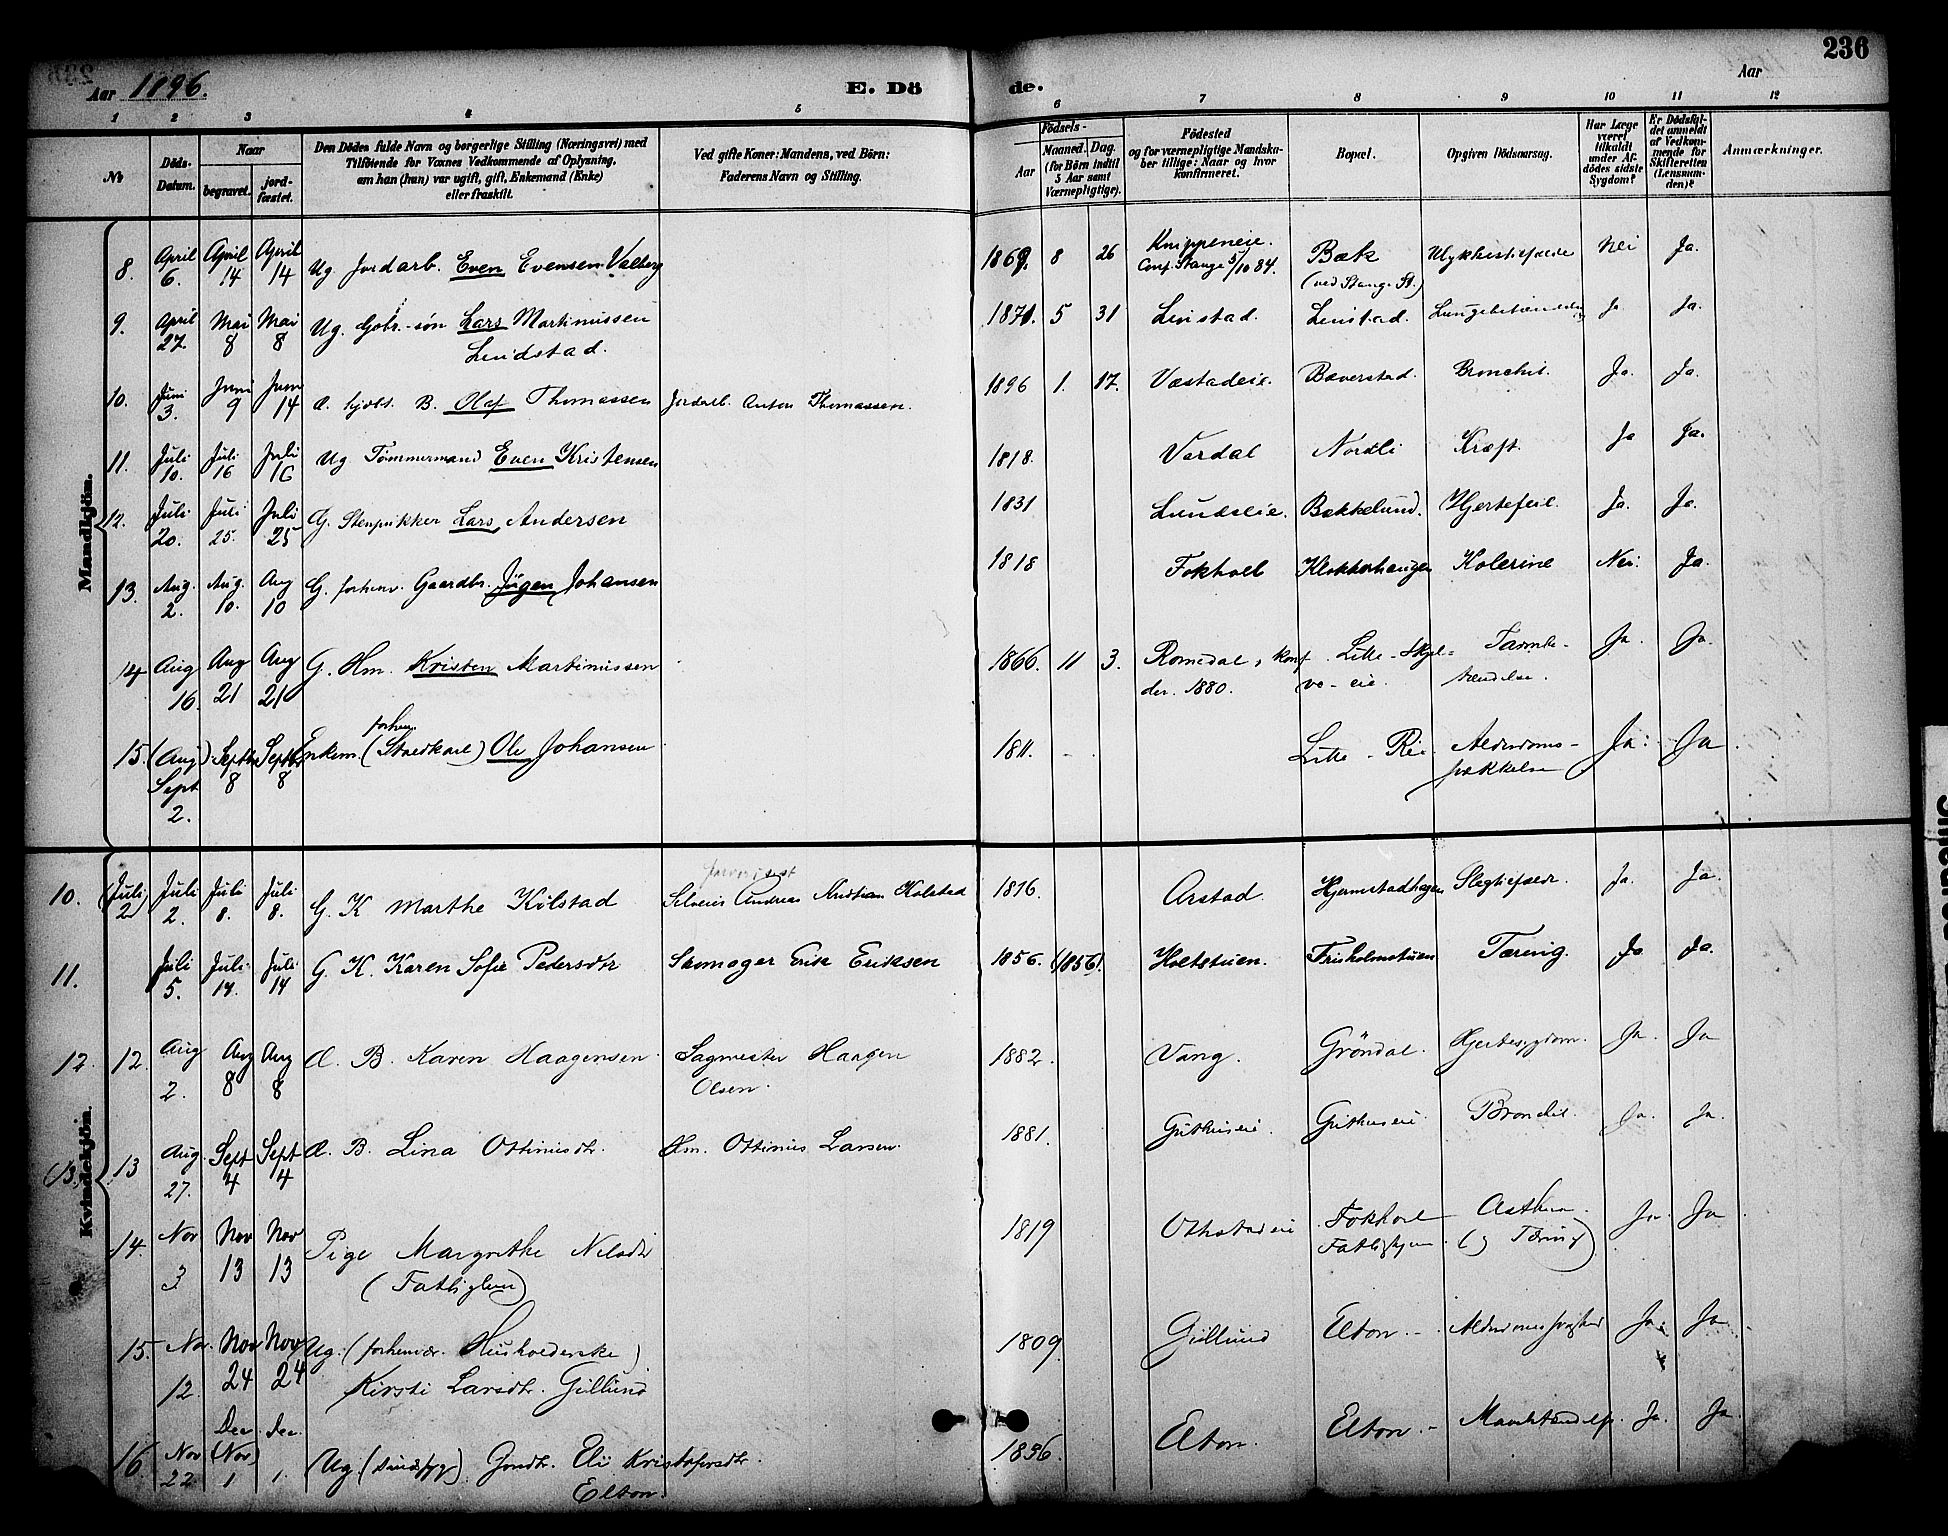 236
Aar 1896.
E. Dö de.
Aar
1 2 3 4 5 6 7 8 9 10 11 12
Nr.
Döds-Datum.
Naar
begravet.
jord-fæstet.
Den Dödes fulde Navn og borgerlige Stilling (Næringsvei) med
Tilföiende for Voxnes Vedkommende af Oplysning,
om han (hun) var ugift, gift, Enkemand (Enke)
eller fraskilt.
Ved gifte Koner: Mandens, ved Börn:
Faderens Navn og Stilling.
Födsels-
Aar
Maaned. Dag.
(for Börn indtil
5 Aar samt
Værnepligtige).
Födested
og for værnepligtige Mandska-
ber tillige: Naar og hvor
konfirmeret.
Bopæl.
Opgiven Dödsaarsag.
Har Læge
været
tilkaldt
under Af-
dödes sidste
Sygdom?
Er Dödsfal-
det anmeldt
af Vedkom-
mende for
Skifteretten
(Lensman-
den)?
Anmærkninger.
Mandkjön.
8. April 6. April 14 April 14 Ug Jordarb. Even Evensen Valberg 1869. 8 26 Knippeneie. Conf. Stange 5/10 84. Bæk (ved Stange St.) Ulykkestilfælde Nei Ja.
9. April 27. Mai 8 Mai 8 Ug. Gbr.-søn Lars Martinussen Lindstad. 1871. 5 31 Linstad. Linstad. Ja Ja.
10. Juni 3. Juni 9 Juni 14 B. Olaf Thomassen Jordarb. Anton Thomassen. 1896 1. 17. Væstadeie. Bæverstad. Bronchit. Ja. Ja.
11. Juli 10. Juli 16 Juli 16 Ug Tømmermand Even Kristensen 1818. Vardal Nordli Kræft. Ja Ja.
12. Juli 20. Juli 25. Juli 25 G. Stenpikker Lars Andersen 1831 Lundseie. Bækkelund. Hjertefeil. Ja. Ja.
13. Aug. 2. Aug. 10. Aug 10 G. forhenv. Gaardbr. Jögen Johansen 1818 Fokhoel Klokkerhaugen Kolerine Nei. Ja.
14 Aug 16. Aug 21 Aug 21 G. Hm. Kristen Martinussen 1866. 11 3. Romedal, konf. der. 1880. Lille-Skjel-ve-eie. Tarmbe-tændelse. Ja. Ja.
15. (Aug) Sept 2. Septb 8 Septb 8 Enkem. forhen. (Stvedkarl) Ole Johansen 1811. Lille-Rie Alderdoms-svækkelse Ja. Ja.
Kvindekjön.
10. (Juli 2) Juli 2. Juli 8. Juli 8. G. K Marthe Kilstad Andreas Kristian Kolstad 1816. Arstad. Hjermstadhagen Slagtilfælde. Ja. Ja.
11. Juli 5. Juli 14. Juli 14 G. K. Karen Sofie Pedersdtr Skomager Erik Eriksen 1856. (1856). Holtstuen. Frisholmstuen Tæring. Ja Ja.
12. 12. Aug 2. Aug 8 Aug 8 B. Karen Haagensen Sagmester Haagen Olsen. 1882. Vang. Gröndal. Hjertesygdom. Ja. Ja
(13) 13 Aug. 27. Sept 4 Sept 4 B. Lina Ottinusdtr. Hm. Ottinus Larsen. 1881. Guthuseie. Guthuseie Bronchit. Ja. Ja.
14. Nov 3 Nov 13 Nov 13 Pige Margrethe Nilsdtr (Fattiglem) 1819 Othstadeie Fokhoel Fattighjem Asthma. (og Tæring) Ja. Ja
15. Nov. 12. Nov 24 Nov 24 Ug. (forhenvær. Husholderske) Kirsti Larsdtr. Gillund 1809 Gillund Elton.- Ja. Ja.
16. Nov 22. Dec (Nov) 1 Dec. 1. Ug (sindssyg) Gaardbr. Eli Kristofersdtr. Elton. 1836. Elton. Elton.- Ja. Ja.